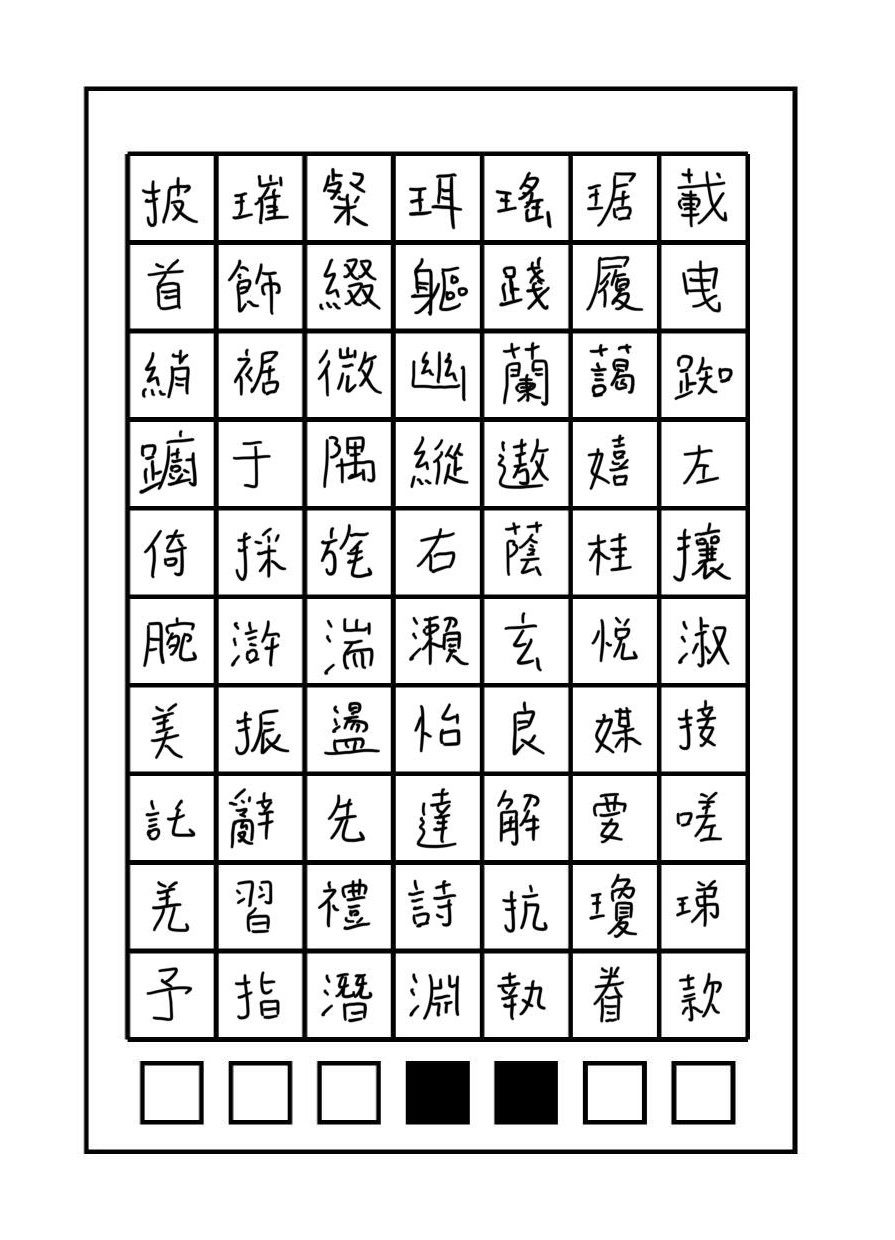 披璀粲珥瑤琚載
首飾綴軀踐履曳
綃裾微幽蘭藹踟
躕于隅縱遨嬉左
倚採旄右蔭桂攘
腕滸湍瀨玄悦淑
美振盪怡良媒接
託辭先達解要嗟
羌習禮詩抗瓊珶
予指潛淵執眷款